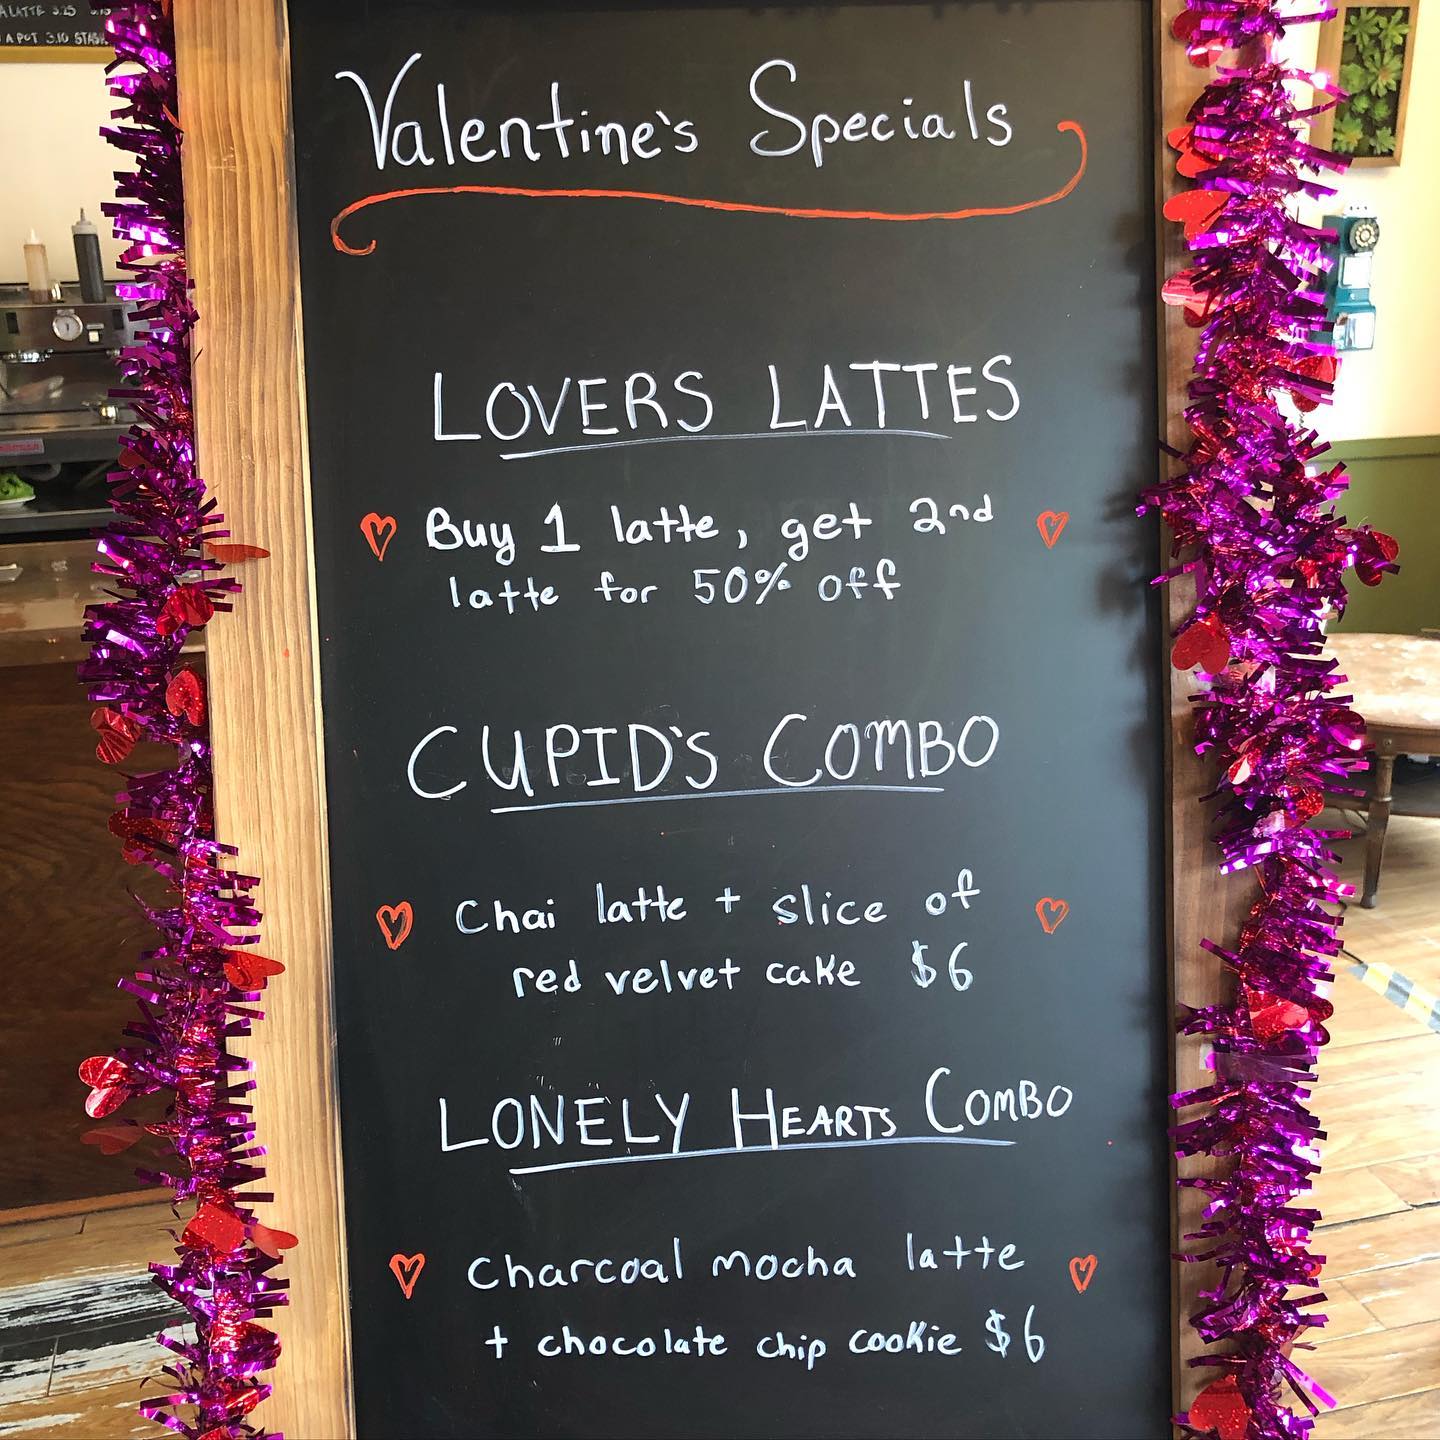 ALATTE 3.25
A POT 3.10 STASH
Valentine's Specials
LOVERS LATTES
Buy 1 latte, get 2nd
latte for 50% off
CUPID'S COMBO
Chai latte + slice of
red velvet cake $6
LONELY HEARTS COMBO
Charcoal mocha latte
+ chocolate chip cookie $6